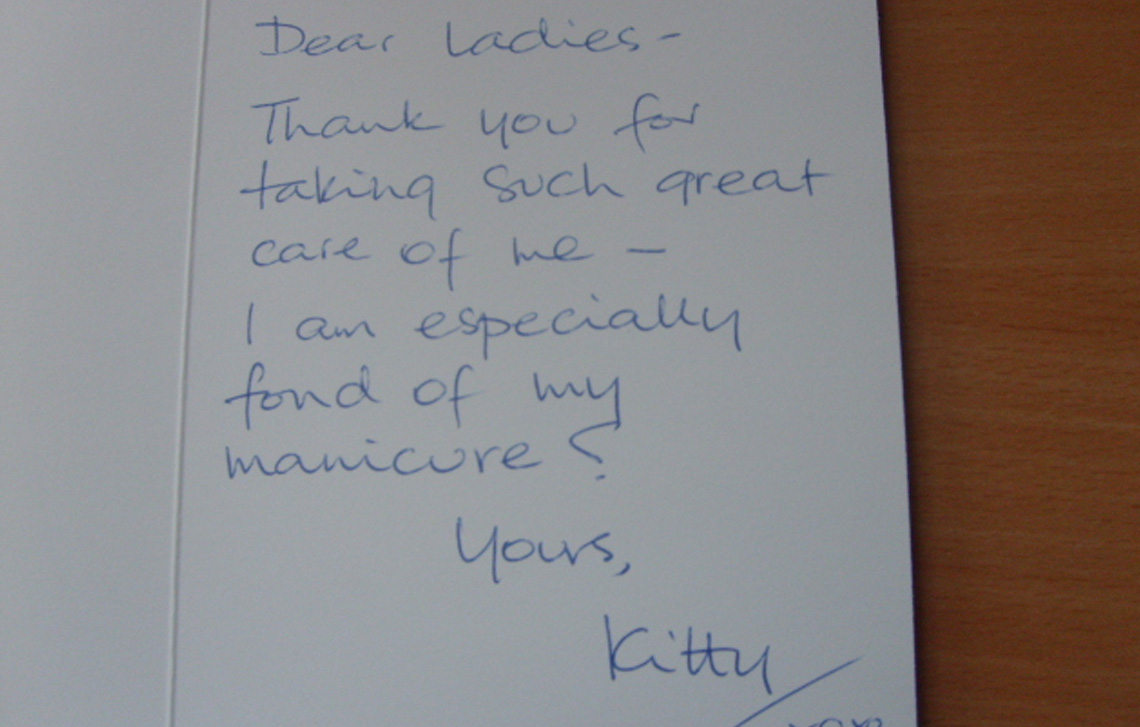 Dear Ladies -
Thank you for
taking such great
care of me -
I am especially
fond of my
manicure ?
Yours,
Kitty